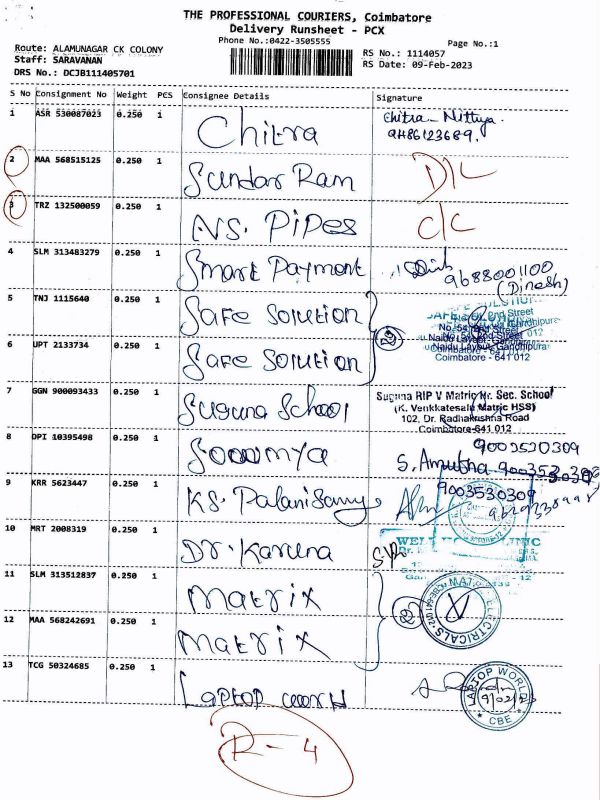 THE PROFESSIONAL COURIERS, Coimbatore
Delivery Runsheet - PCX
Phone No.:0422-3505555
Page No.:1
Route: ALAMUNAGAR CK COLONY
RS No.: 1114057
Staff: SARAVANAN
RS Date: 09-Feb-2023
DRS No.: DCJB111405701
S No Consignment No Weight PCS Consignee Details Signature
1 ASR 530087023 0.250 1 Chitra Chitra Nithya. 9486123689.
2 MAA 568515125 0.250 1 Sundar Ram D/L
3 TRZ 132500059 0.250 1 NS. Pipes C/C
4 SLM 313483279 0.250 1 Smart Payment 9688001100
(Dinesh)
5 TNJ 1115640 0.250 1 Safe Solution
6 UPT 2133734 0.250 1 Safe Solution
2nd Street
Naidu Layout, Gandhipuram
Coimbatore - 641 012
7 GGN 900093433 0.250 1 Suguna School
Suguna RIP V Matric Hr. Sec. School
(K. Venkkatesalu Matric HSS)
102, Dr. Radhakrishna Road
Coimbatore-641 012
8 DPI 10395498 0.250 1 Sowmya 9003530309
S. Anubha 9003530309
9 KRR 5623447 0.250 1 KS. Palanisamy 9003530309
10 MRT 2008319 0.250 1 Dr. Karuna
11 SLM 313512837 0.250 1 Matrix
12 MAA 568242691 0.250 1 Matrix 2
13 TCG 50324685 0.250 1 Laptop world
LAPTOP WORLD
9/02/23
* CBE *
R-4